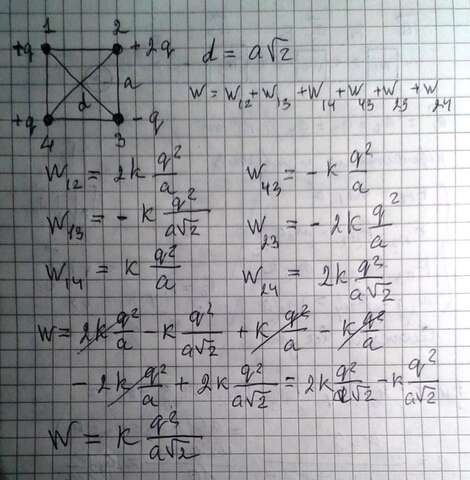 1 2
+q +2q d = a√2
a
d
+q -q
4 3
W = W₁₂ + W₁₃ + W₁₄ + W₄₃ + W₂₃ + W₂₄
W₁₂ = 2k q²/a W₄₃ = -k q²/a
W₁₃ = -k q²/a√2 W₂₃ = -2k q²/a
W₁₄ = k q²/a W₂₄ = 2k q²/a√2
W = 2k q²/a - k q²/a√2 + k q²/a - k q²/a
- 2k q²/a + 2k q²/a√2 = 2k q²/a√2 - k q²/a√2
W = k q²/a√2